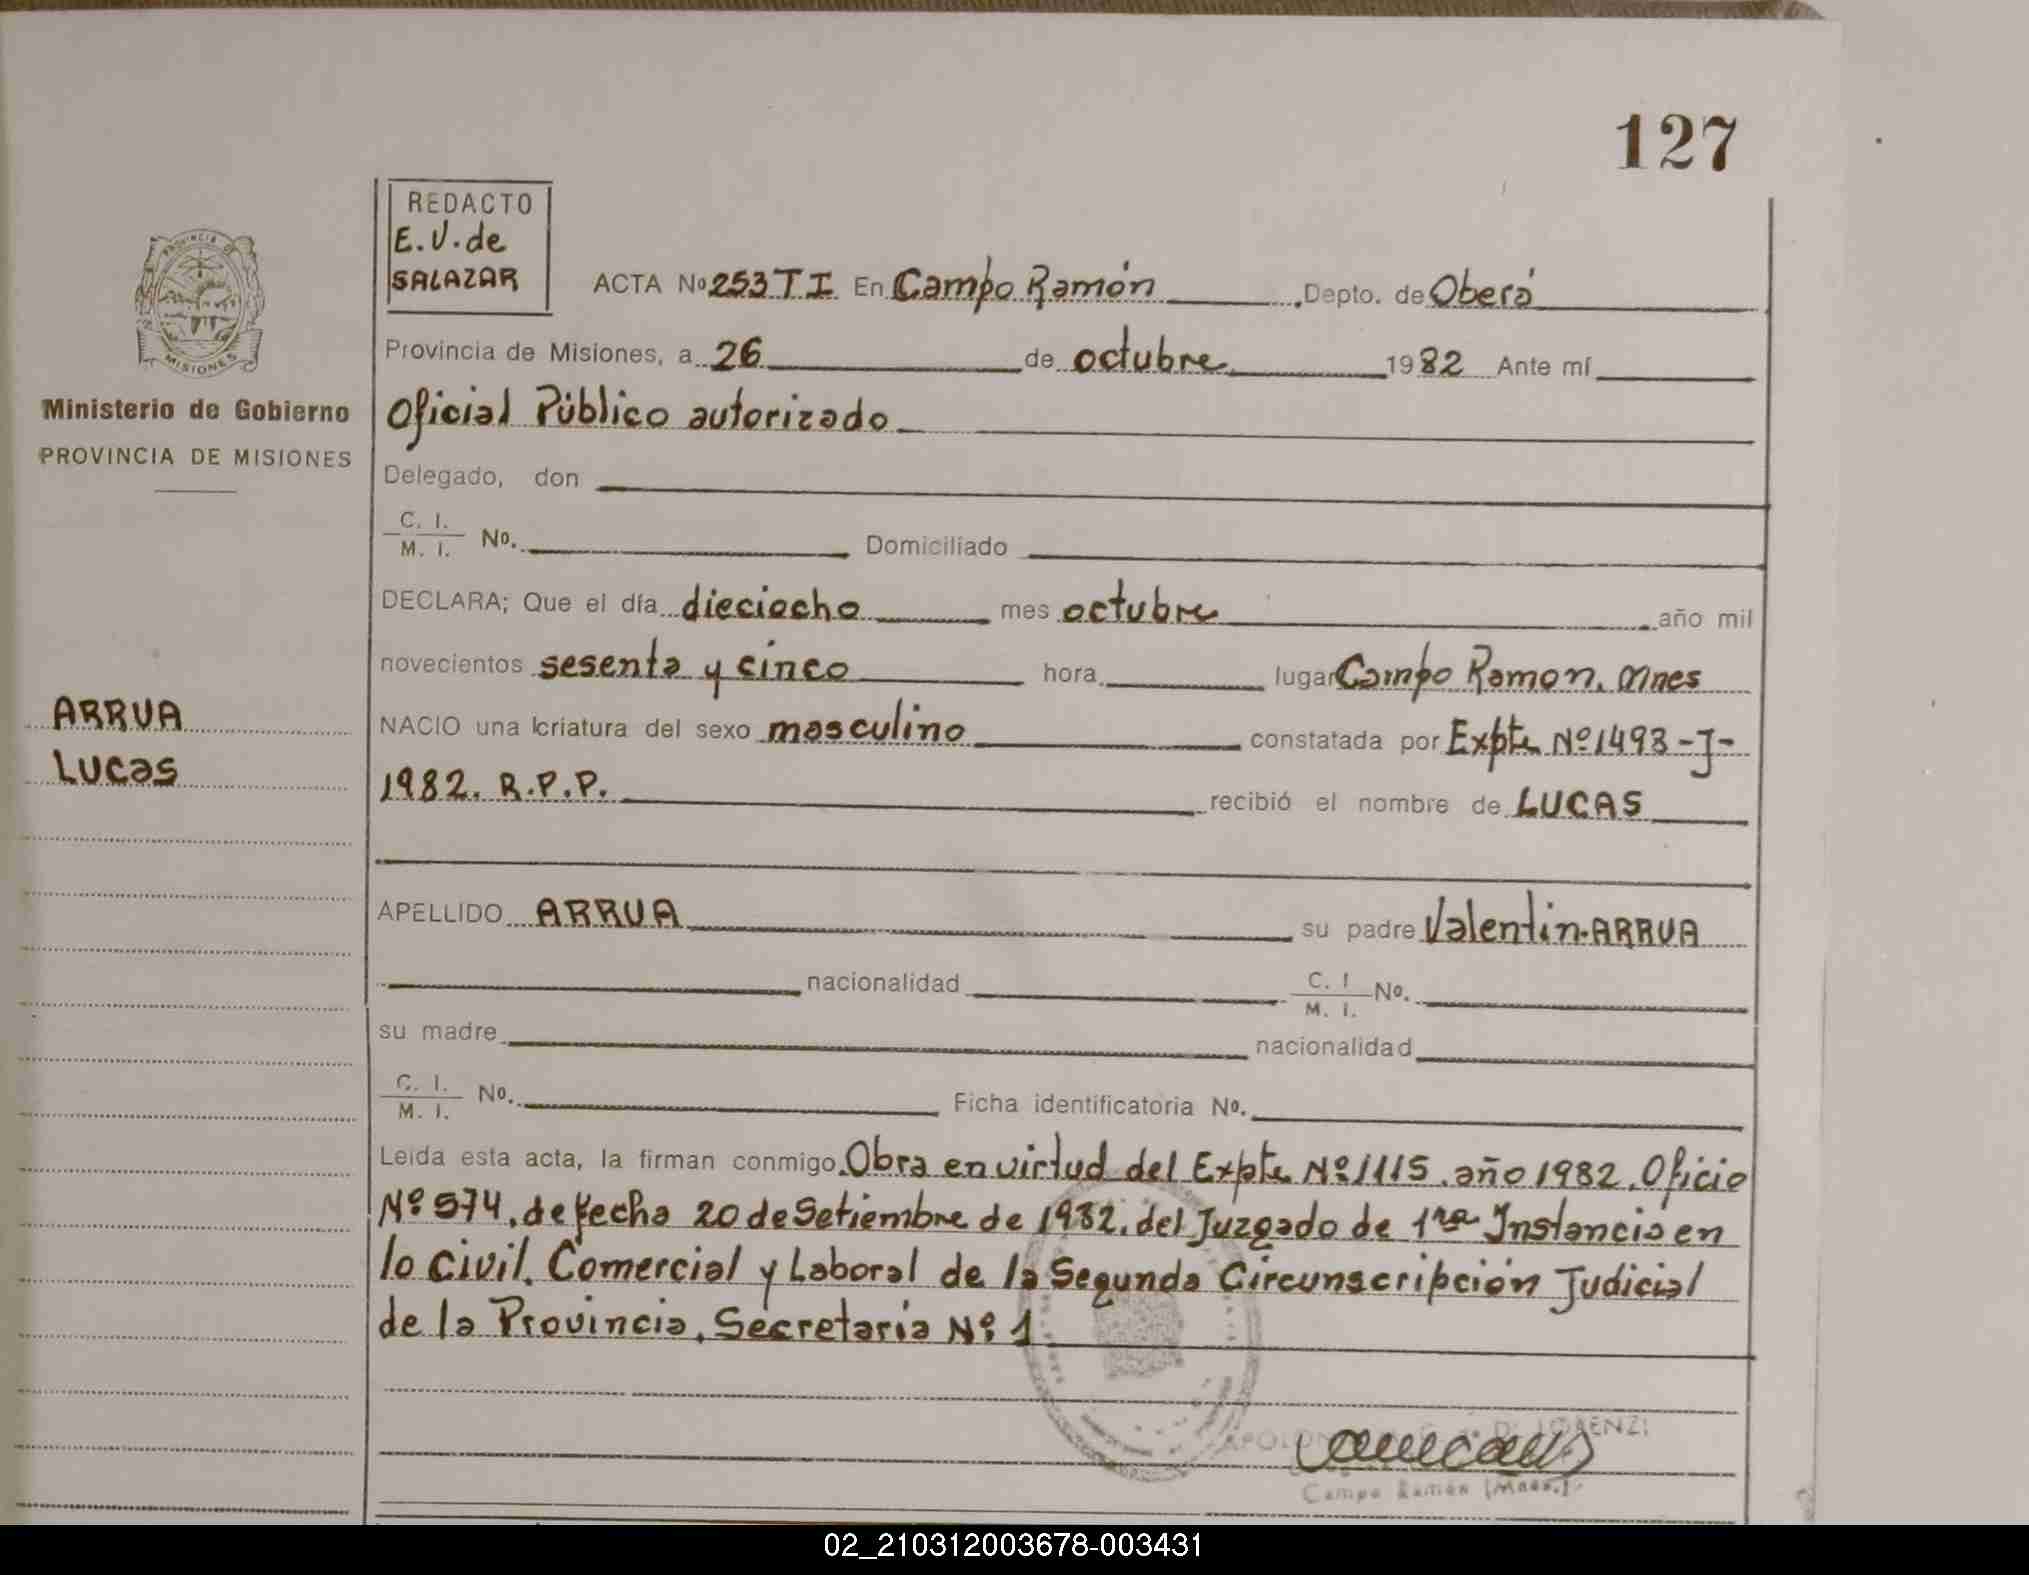 127
REDACTO
E.V. de
SALAZAR
ACTA Nº 253 T I En Campo Ramón Depto. de Oberá
Provincia de Misiones, a 26 de octubre 1982 Ante mí
Oficial Público autorizado
Delegado, don
C. I.
M. I. Nº. Domiciliado
DECLARA; Que el día dieciocho mes octubre año mil
novecientos sesenta y cinco hora lugar Campo Ramon. Mnes
NACIO una criatura del sexo masculino constatada por Expte Nº 1493-J-
1982. R.P.P. recibió el nombre de LUCAS
APELLIDO ARRUA su padre Valentin ARRUA
nacionalidad C. I
M. I. Nº.
su madre nacionalidad
C. I.
M. I. Nº. Ficha identificatoria Nº.
Leída esta acta, la firman conmigo Obra en virtud del Expte Nº 1115. año 1982. Oficio
Nº 574. de fecha 20 de Setiembre de 1982. del Juzgado de 1ra Instancia en
lo Civil. Comercial y Laboral de la Segunda Circunscripción Judicial
de la Provincia. Secretaria Nº 1
LORENZI
Campo Ramón (Mnes.)
PROVINCIA DE
MISIONES
Ministerio de Gobierno
PROVINCIA DE MISIONES
ARRUA
Lucas
02_210312003678-003431